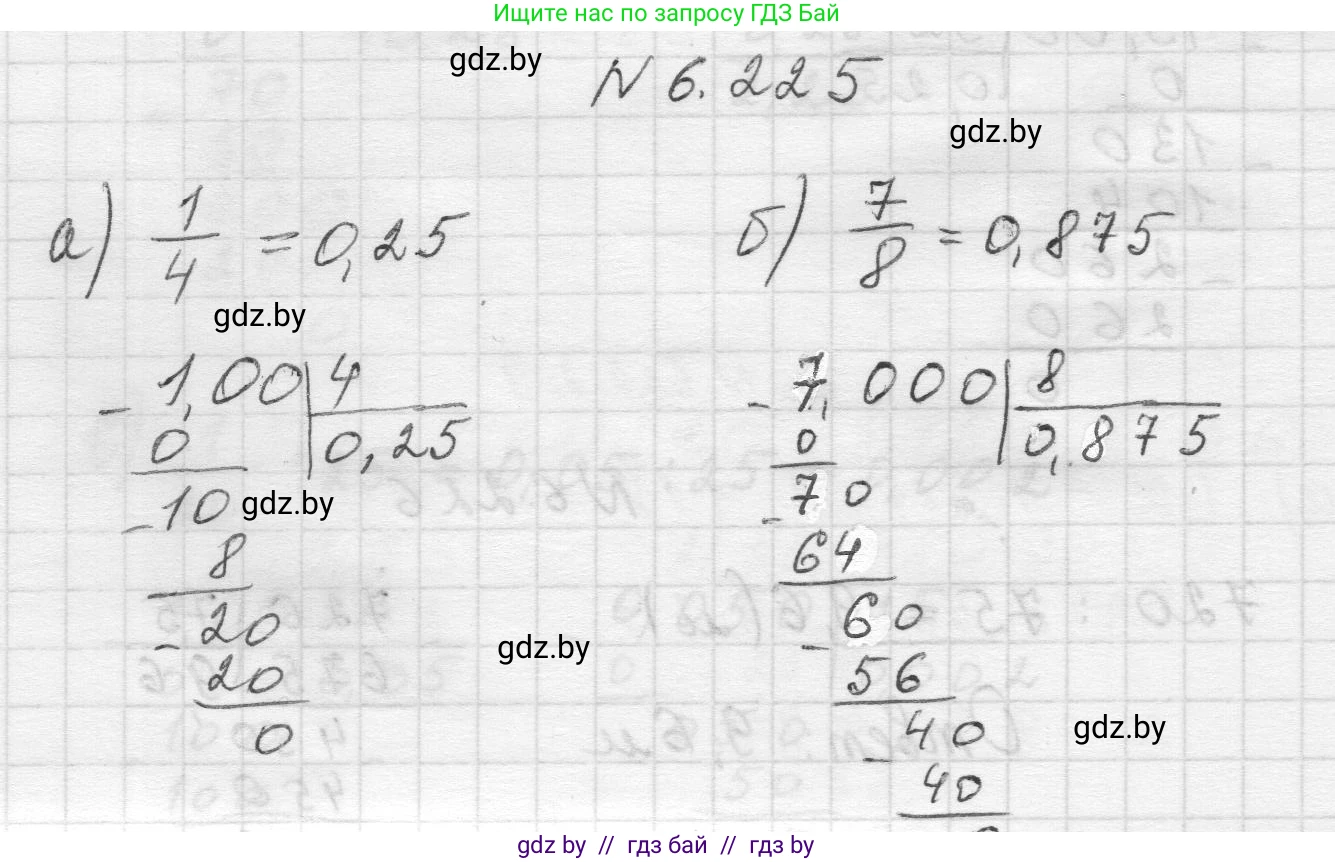 Ищите нас по запросу ГДЗ Бай
gdz.by
N 6.225
gdz.by
а) 1/4 = 0,25
б) 7/8 = 0,875
gdz.by
1,00 | 4
- 0 | 0,25
gdz.by
- 10
8
- 20
20
0
7,000 | 8
- 0 | 0,875
- 70
64
- 60
56
gdz.by
- 40
40
0
gdz.by
gdz.by // гдз бай // гдз by